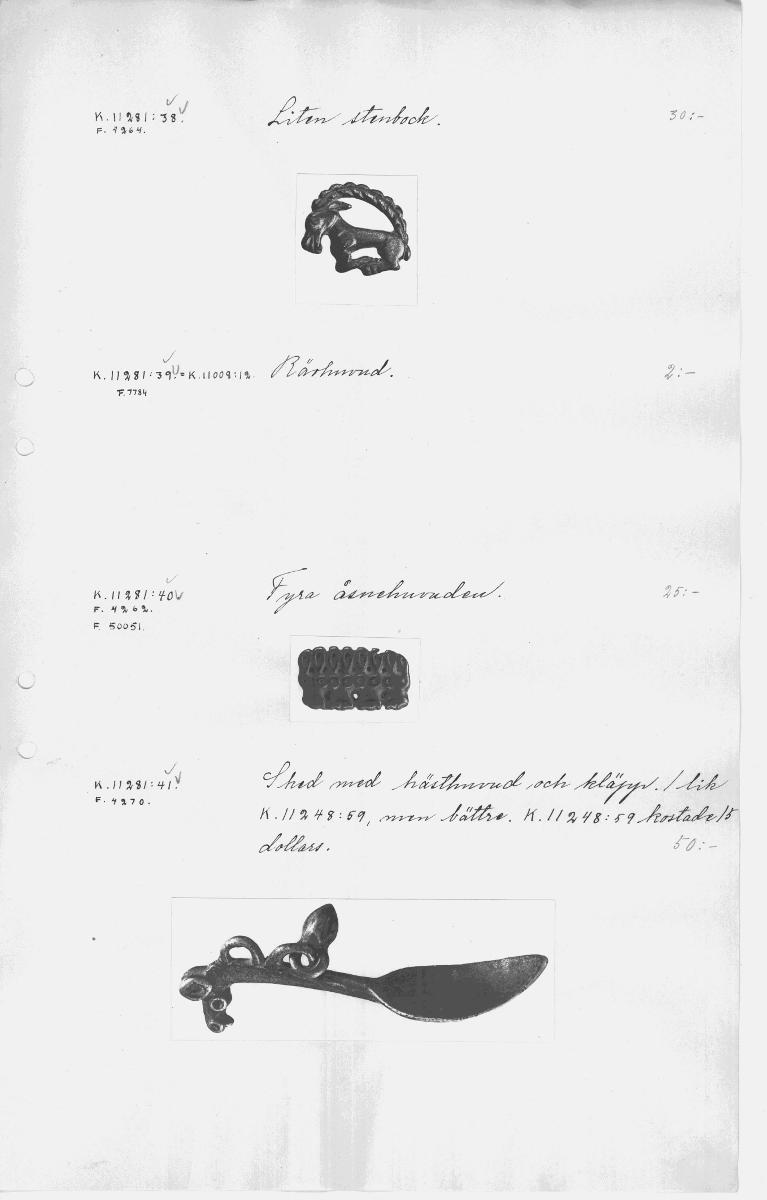 K.11281:38. Liten stenbock. 30:-
F. 4264.
K.11281:39. = K.11008:12. Rävhuvud. 2:-
F.7784
K.11281:40 Fyra åsnehuvuden. 25:-
F. 4262.
F. 50051.
K.11281:41. Sked med hästhuvud och kläpp. / lik
F. 4270.
K.11248:59, men bättre. K.11248:59 kostade 15
dollars. 50:-